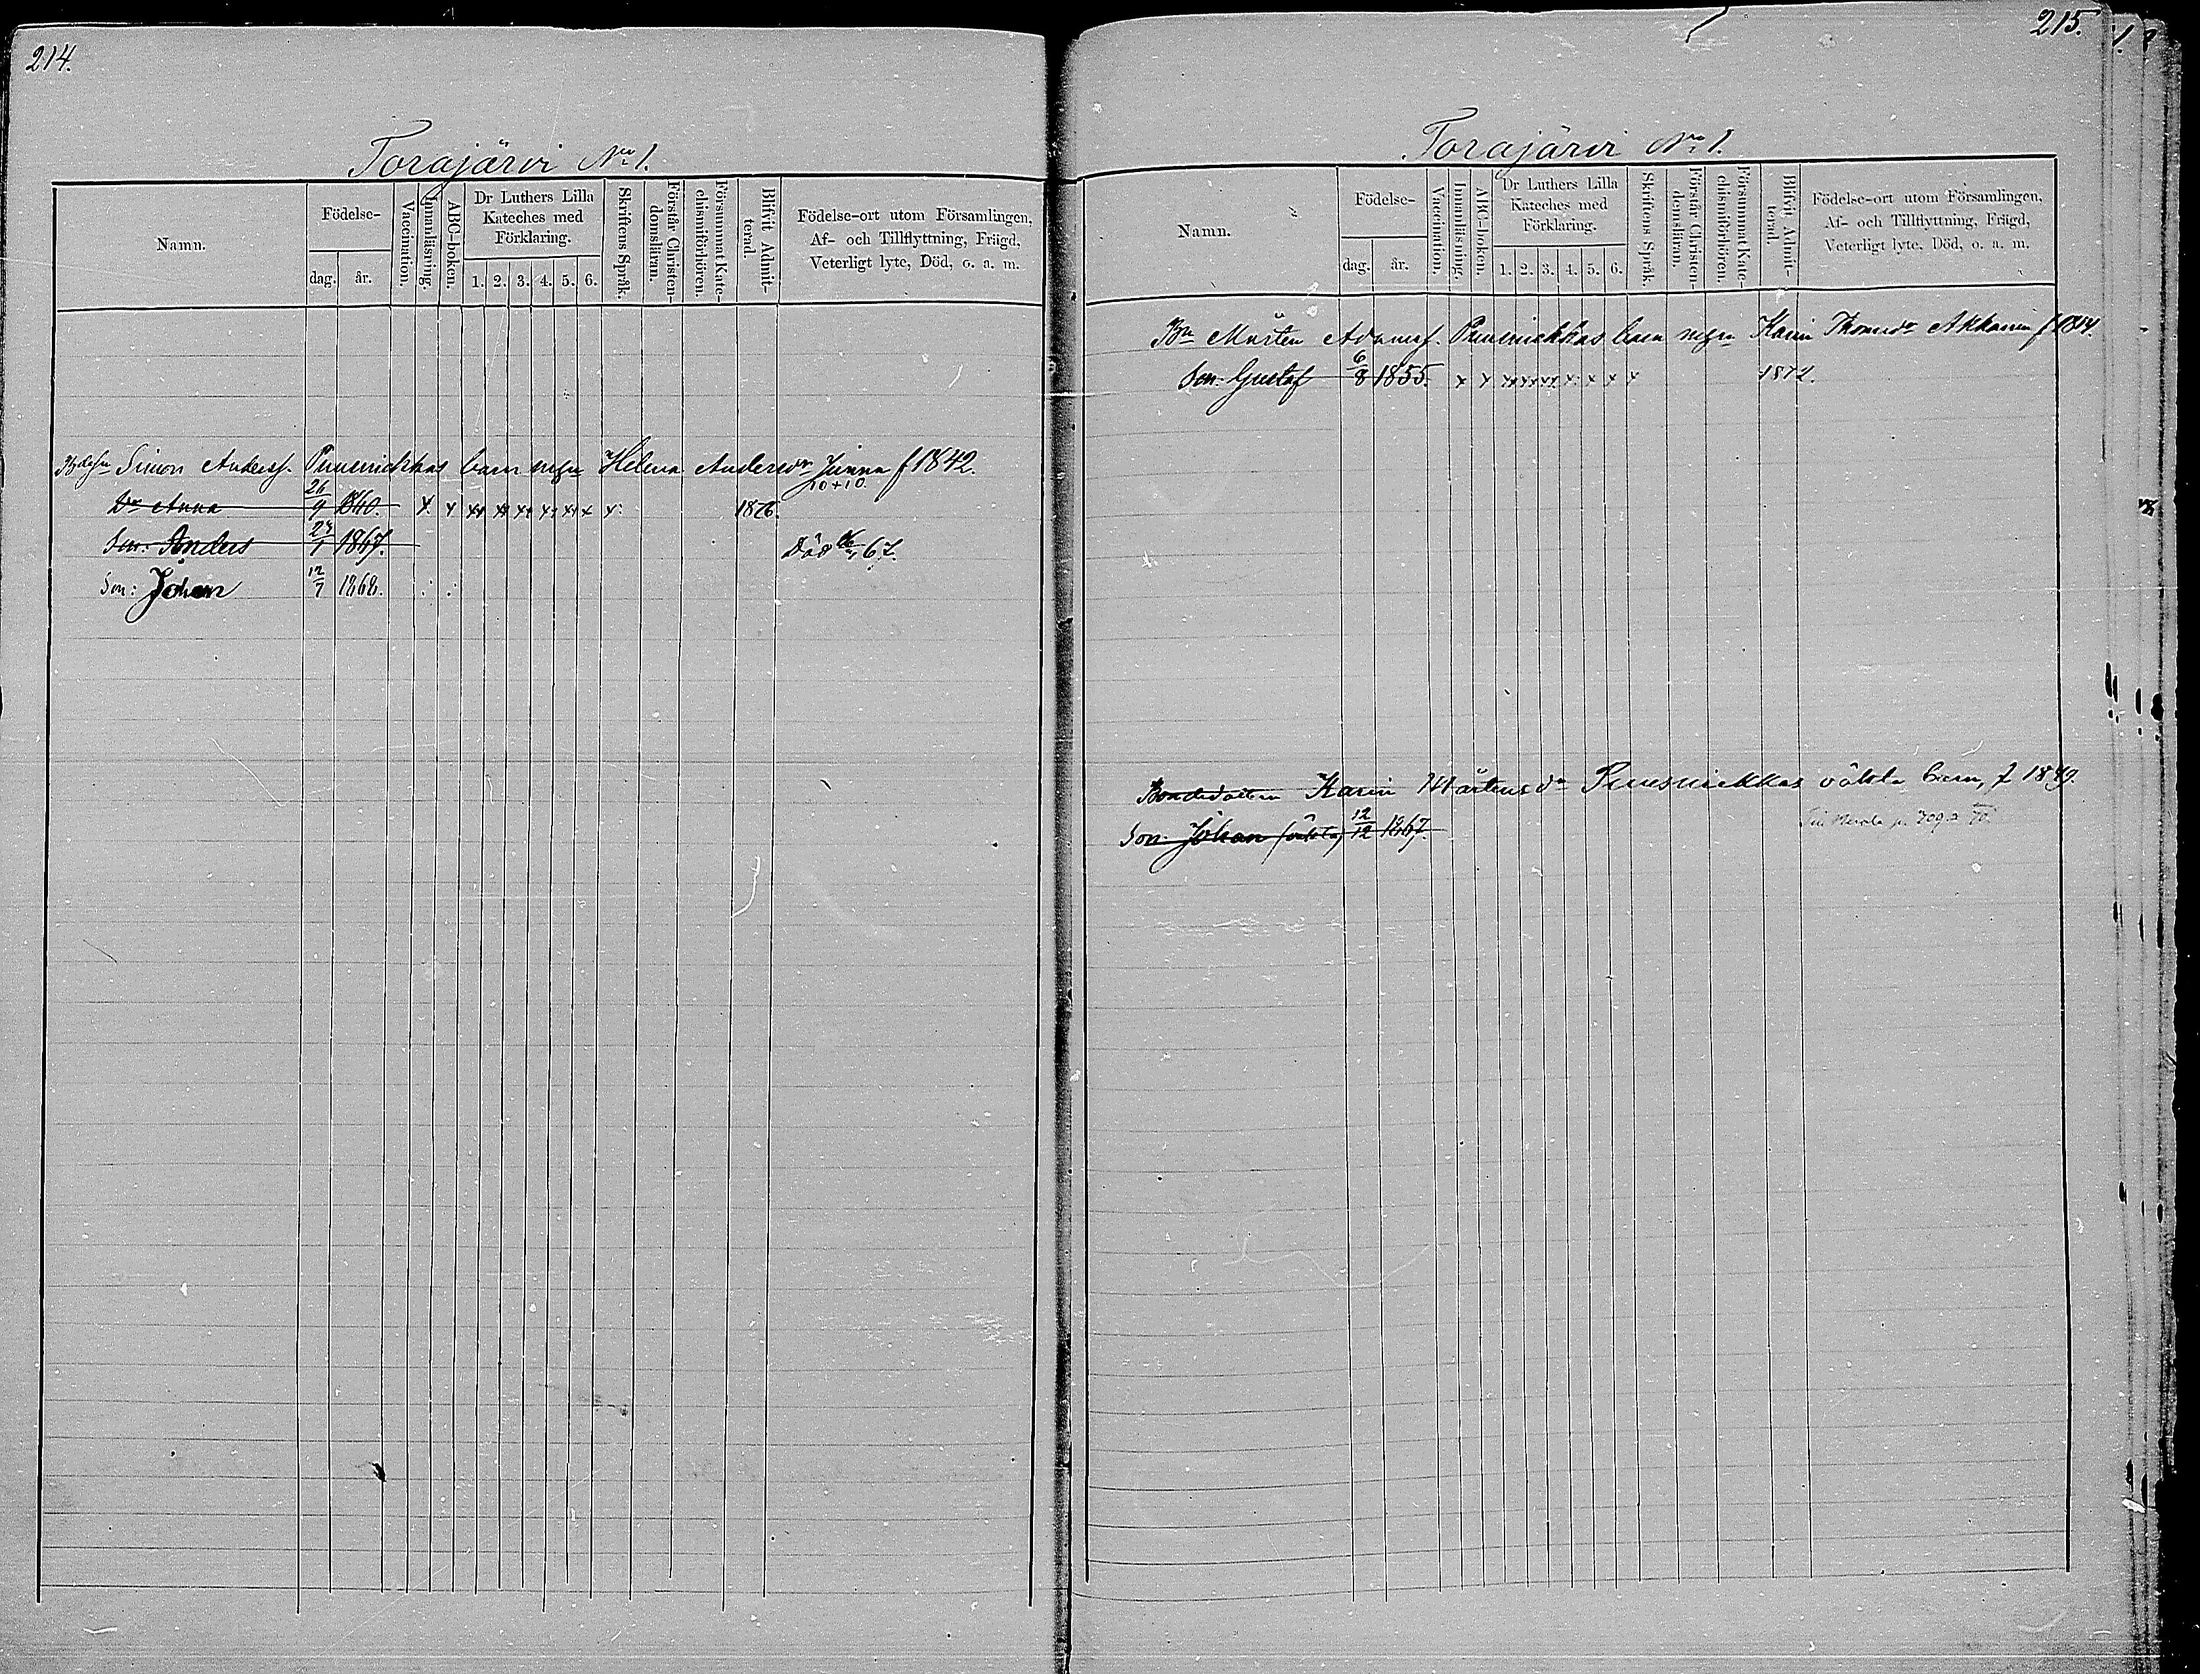 214.
Torajärvi No 1.
Namn.
Födelse-
dag.
år.
Vaccination.
Innanläsning.
ABC-boken.
Dr Luthers Lilla
Kateches med
Förklaring.
1. 2. 3. 4. 5. 6.
Skriftens Språk.
Förstår Christen-
domsläran.
Försummat Kate-
chismiförhören.
Blifvit Admit-
terad.
Födelse-ort utom Församlingen,
Af- och Tillflyttning, Frägd,
Veterligt lyte, Död, o. a. m.
Simon Andersf. Puusniekkas barn m Helena Andersdr Junna f 1842.
10+10.
Dr Anna 26/9 1860. x x xx xx xx xx xx x x 1876.
Son: Anders 1867. Död 67.
Son: Johan 12/7 1868.
215.
Torajärvi No 1.
Namn.
Födelse-
dag.
år.
Vaccination.
Innanläsning.
ABC-boken.
Dr Luthers Lilla
Kateches med
Förklaring.
1. 2. 3. 4. 5. 6.
Skriftens Språk.
Förstår Christen-
domsläran.
Försummat Kate-
chismiförhören.
Blifvit Admit-
terad.
Födelse-ort utom Församlingen,
Af- och Tillflyttning, Frägd,
Veterligt lyte, Död, o. a. m.
Bn Mårten Adamsf. Puusniekkas barn m Karin Thomsdr Akkanen f 1814.
Son: Gustaf 6/8 1855. x x xx xx xx x x x x 1872.
Bondedottern Karin Mårtensdr Puusniekkas oäkta barn, f 1849.
Son: Johan (oäkta) 12/12 1867.